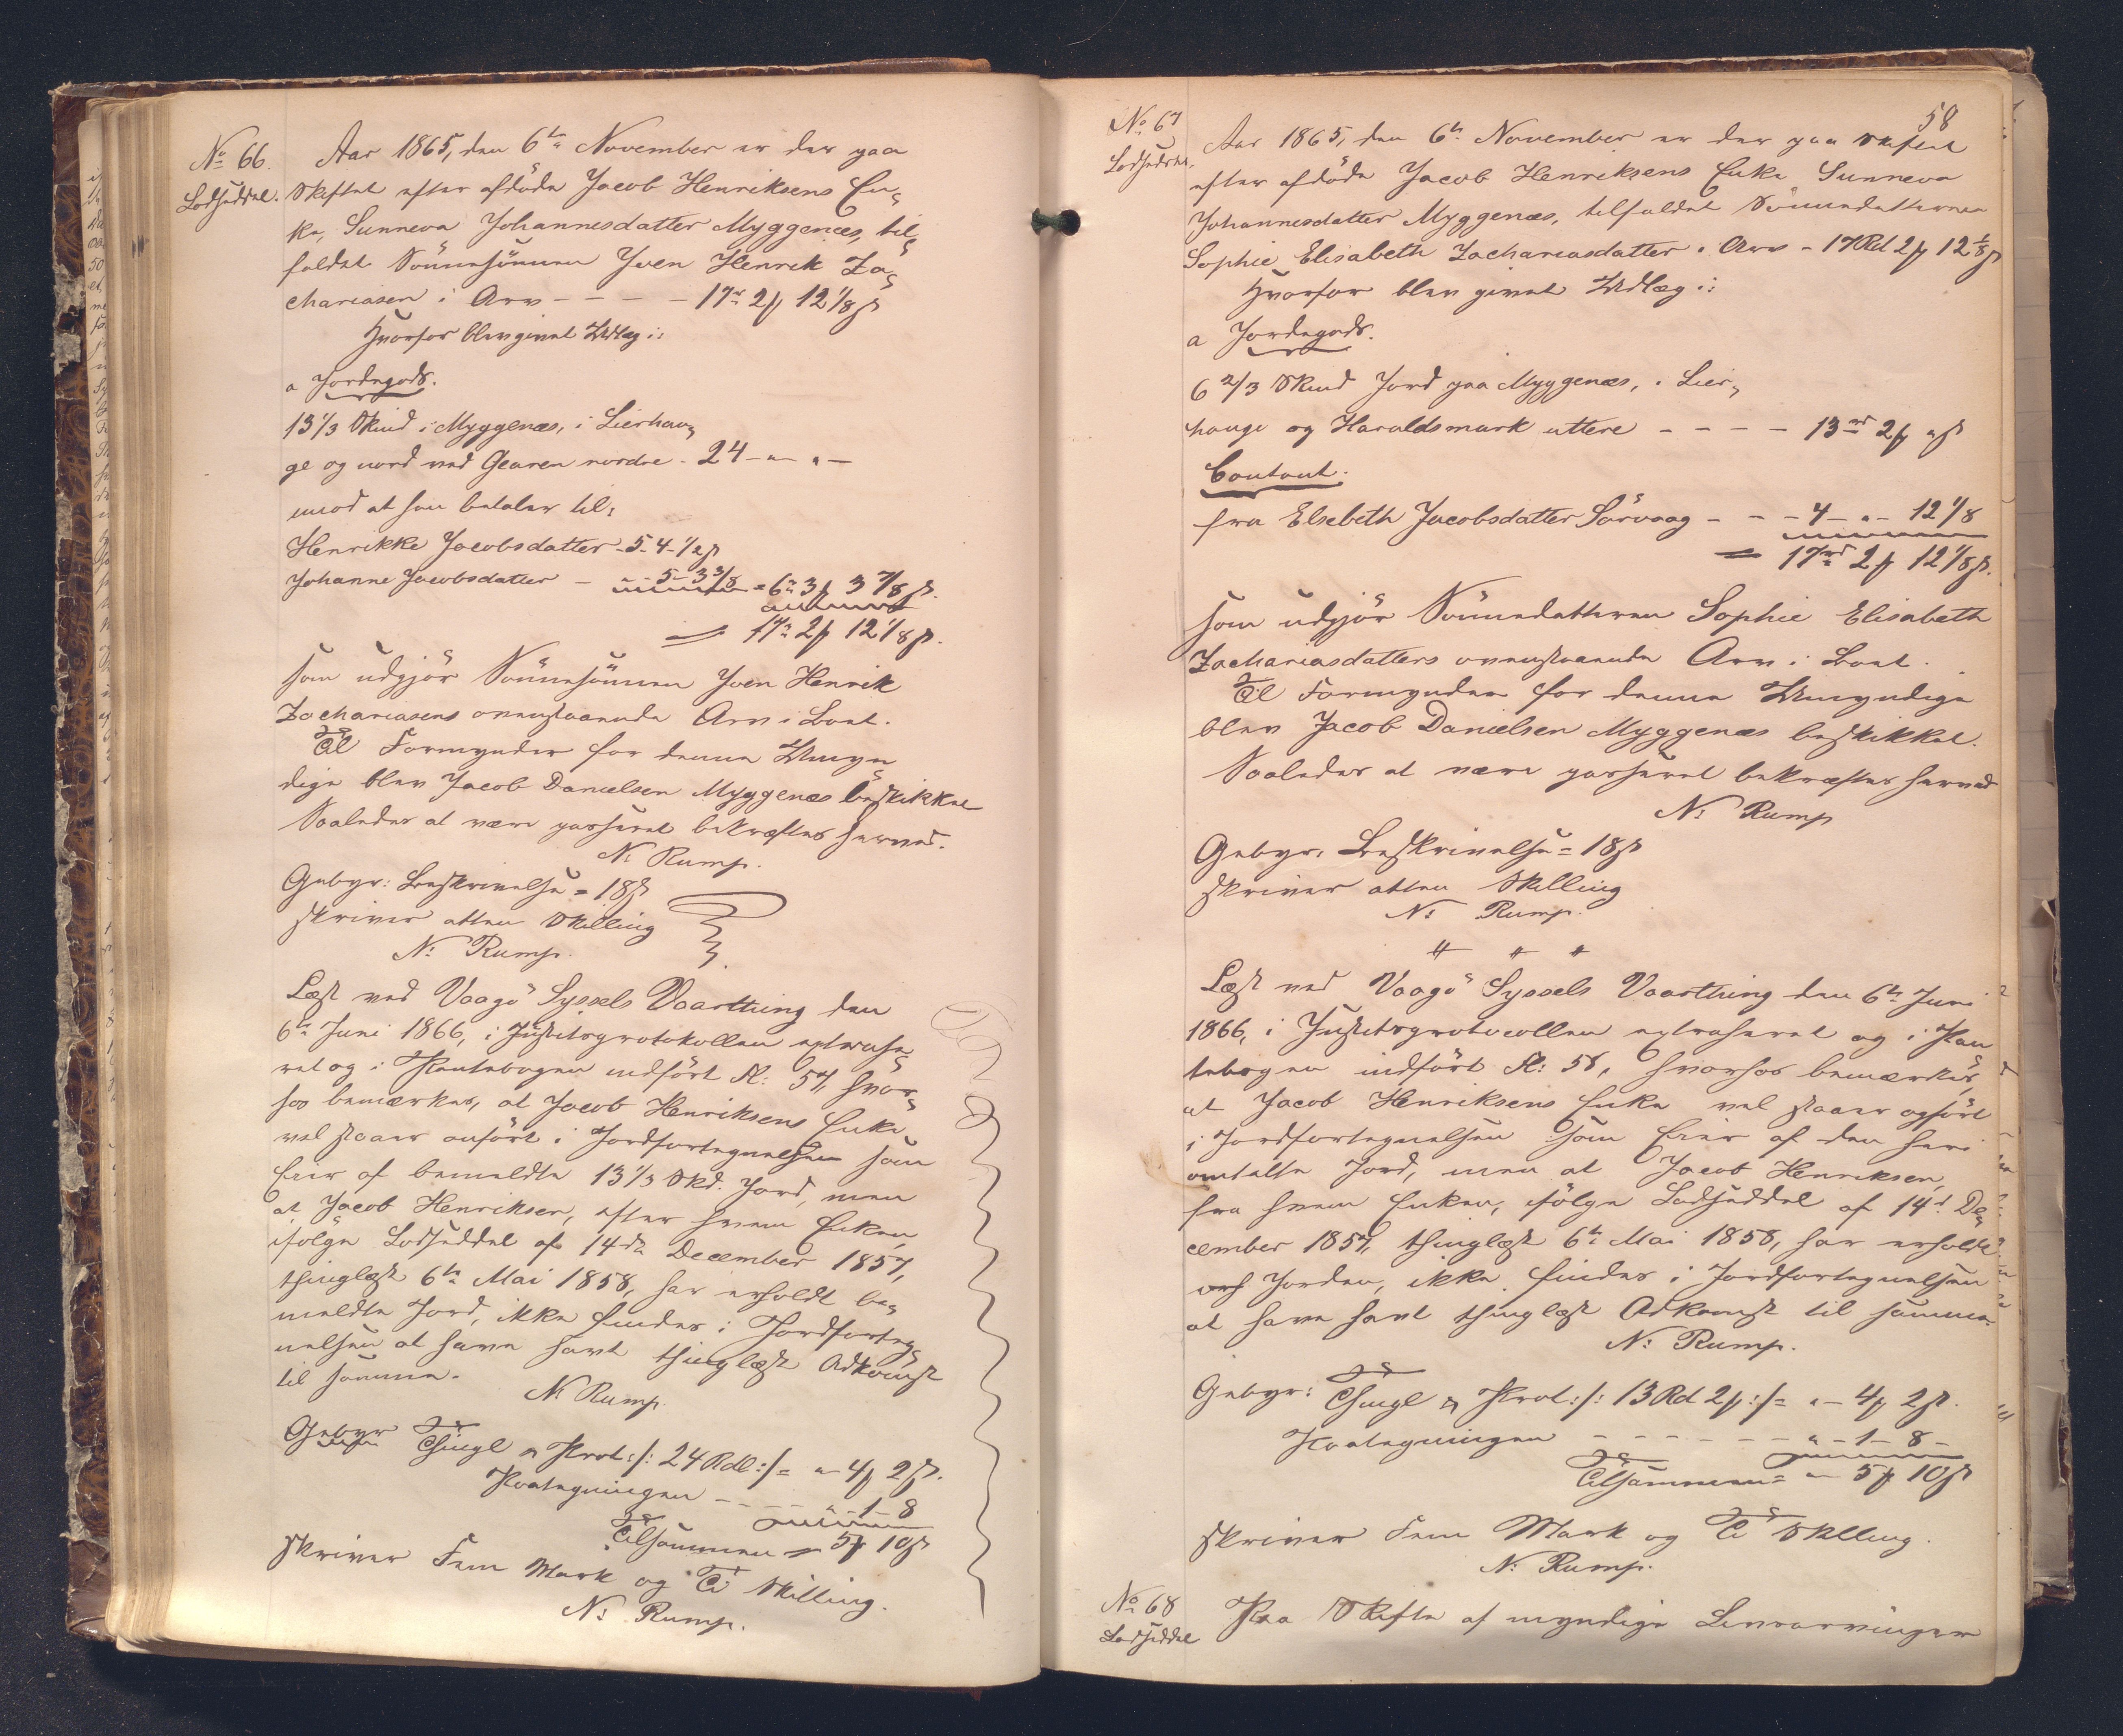 No 66.
Lodseddel.
Aar 1865, den 6te November er der paa
Skiftet efter afdöde Jacob Henriksens En-
ke, Sunneva Johannesdatter Myggenæs, til-
faldet Sönnesönnen Joen Henrik Za-
chariasen i Arv - - - - 17rd 2 ꝑ 12 1/8 ß
Hvorfor blev givet Udlæg i:
a Jordegods.
13 1/3 Skind i Myggenæs, i Lierhau-
ge og nord ved Gearen nordre - 24 - " - " -
imod at han betaler til:
Henrikke Jacobsdatter - 5 - 4 - 1/2 ß
Johanne Jacobsdatter - - 5 - 3 3/8 = 6rd 3 ꝑ 3 7/8 ß.
= 17rd 2 ꝑ 12 1/8 ß.
som udgjör Sönnesönnen Joen Henrik
Zachariasens ovenstaaende Arv i Boet.
Til Formynder for denne Umyn-
dige blev Jacob Danielsen Myggenæs beskikket
Saaledes at være passeret bekræftes herved.
N: Rump.
Gebyr: Beskrivelse = 18 ß
skriver atten Skilling
N: Rump.
Læst ved Vaagö Syssels Vaarthing den
6te Juni 1866, i Justitsprotokollen extrahe-
ret og i Pantebogen indfört Fl: 57, hvor-
hos bemærkes, at Jacob Henriksens Enke
vel staaer anfört i Jordfortegnelsen som
Eier af bemeldte 13 1/3 Skd. Jord, men
at Jacob Henriksen, efter hvem Enken,
ifölge Lodseddel af 14de December 1857,
thinglæst 6te Mai 1858, har erholdt be-
meldte Jord, ikke findes i Jordforteg-
nelsen at have havt thinglæst Adkomst
til samme.
N: Rump.
Gebyr Thingl & Prot:/: 24 Rdl :/= " - 4 ꝑ 2 ß.
Paategningen - - - - " - 1 - 8
Tilsammen = 5 ꝑ 10 ß
skriver Fem Mark og Ti Skilling.
N: Rump.
58
No 67
Lodseddel.
Aar 1865, den 6te November er der paa Skiftet
efter afdöde Jacob Henriksens Enke Sunneva
Johannesdatter Myggenæs, tilfaldet Sönnedatteren
Sophie Elisabeth Zachariasdatter i Arv - 17 Rd 2 ꝑ 12 1/8 ß
Hvorfor blev givet Udlæg i:
a Jordegods.
6 2/3 Skind Jord paa Myggenæs, i Lier-
hauge og Haraldsmark uttere - - - - 13rd 2 ꝑ " ß
Contant:
fra Elsebeth Jacobsdatter Sörvaag - - - 4 - " - 12 1/8
= 17rd 2 ꝑ 12 1/8 ß.
som udgjör Sönnedatteren Sophie Elisabeth
Zachariasdatters ovenstaaende Arv i Boet.
Til Formynder for denne Umyndige
blev Jacob Danielsen Myggenæs beskikket.
Saaledes at være passeret bekræftes herved
N: Rump
Gebyr: Beskrivelse = 18 ß
skriver atten Skilling
N: Rump.
" " "
Læst ved Vaagö Syssels Vaarthing den 6te Juni
1866, i Justitsprotocollen extraheret og i Pan
tebogen indfört Fl: 58, hvorhos bemærkes,
at Jacob Henriksens Enke vel staaer opfört
i Jordfortegnelsen som Eier af den heri
omtalte Jord, men at Jacob Henriksen,
fra hvem Enken, ifölge Lodseddel af 14d De-
cember 1857, thinglæst 6te Mai 1858, har erholdt
Jorden, ikke findes i Jordfortegnelsen
at have havt thinglæst Adkomst til samme.
N: Rump.
Gebyr: Thingl & Prot:/: 13 Rd 2 ꝑ :/= " - 4 ꝑ 2 ß.
Paategningen - - - - - - " - 1 - 8 -
Tilsammen = " - 5 ꝑ 10 ß
skriver Fem Mark og Ti Skilling.
N: Rump.
No 68
Lodseddel
Paa Skifte af myndige Livsarvinger